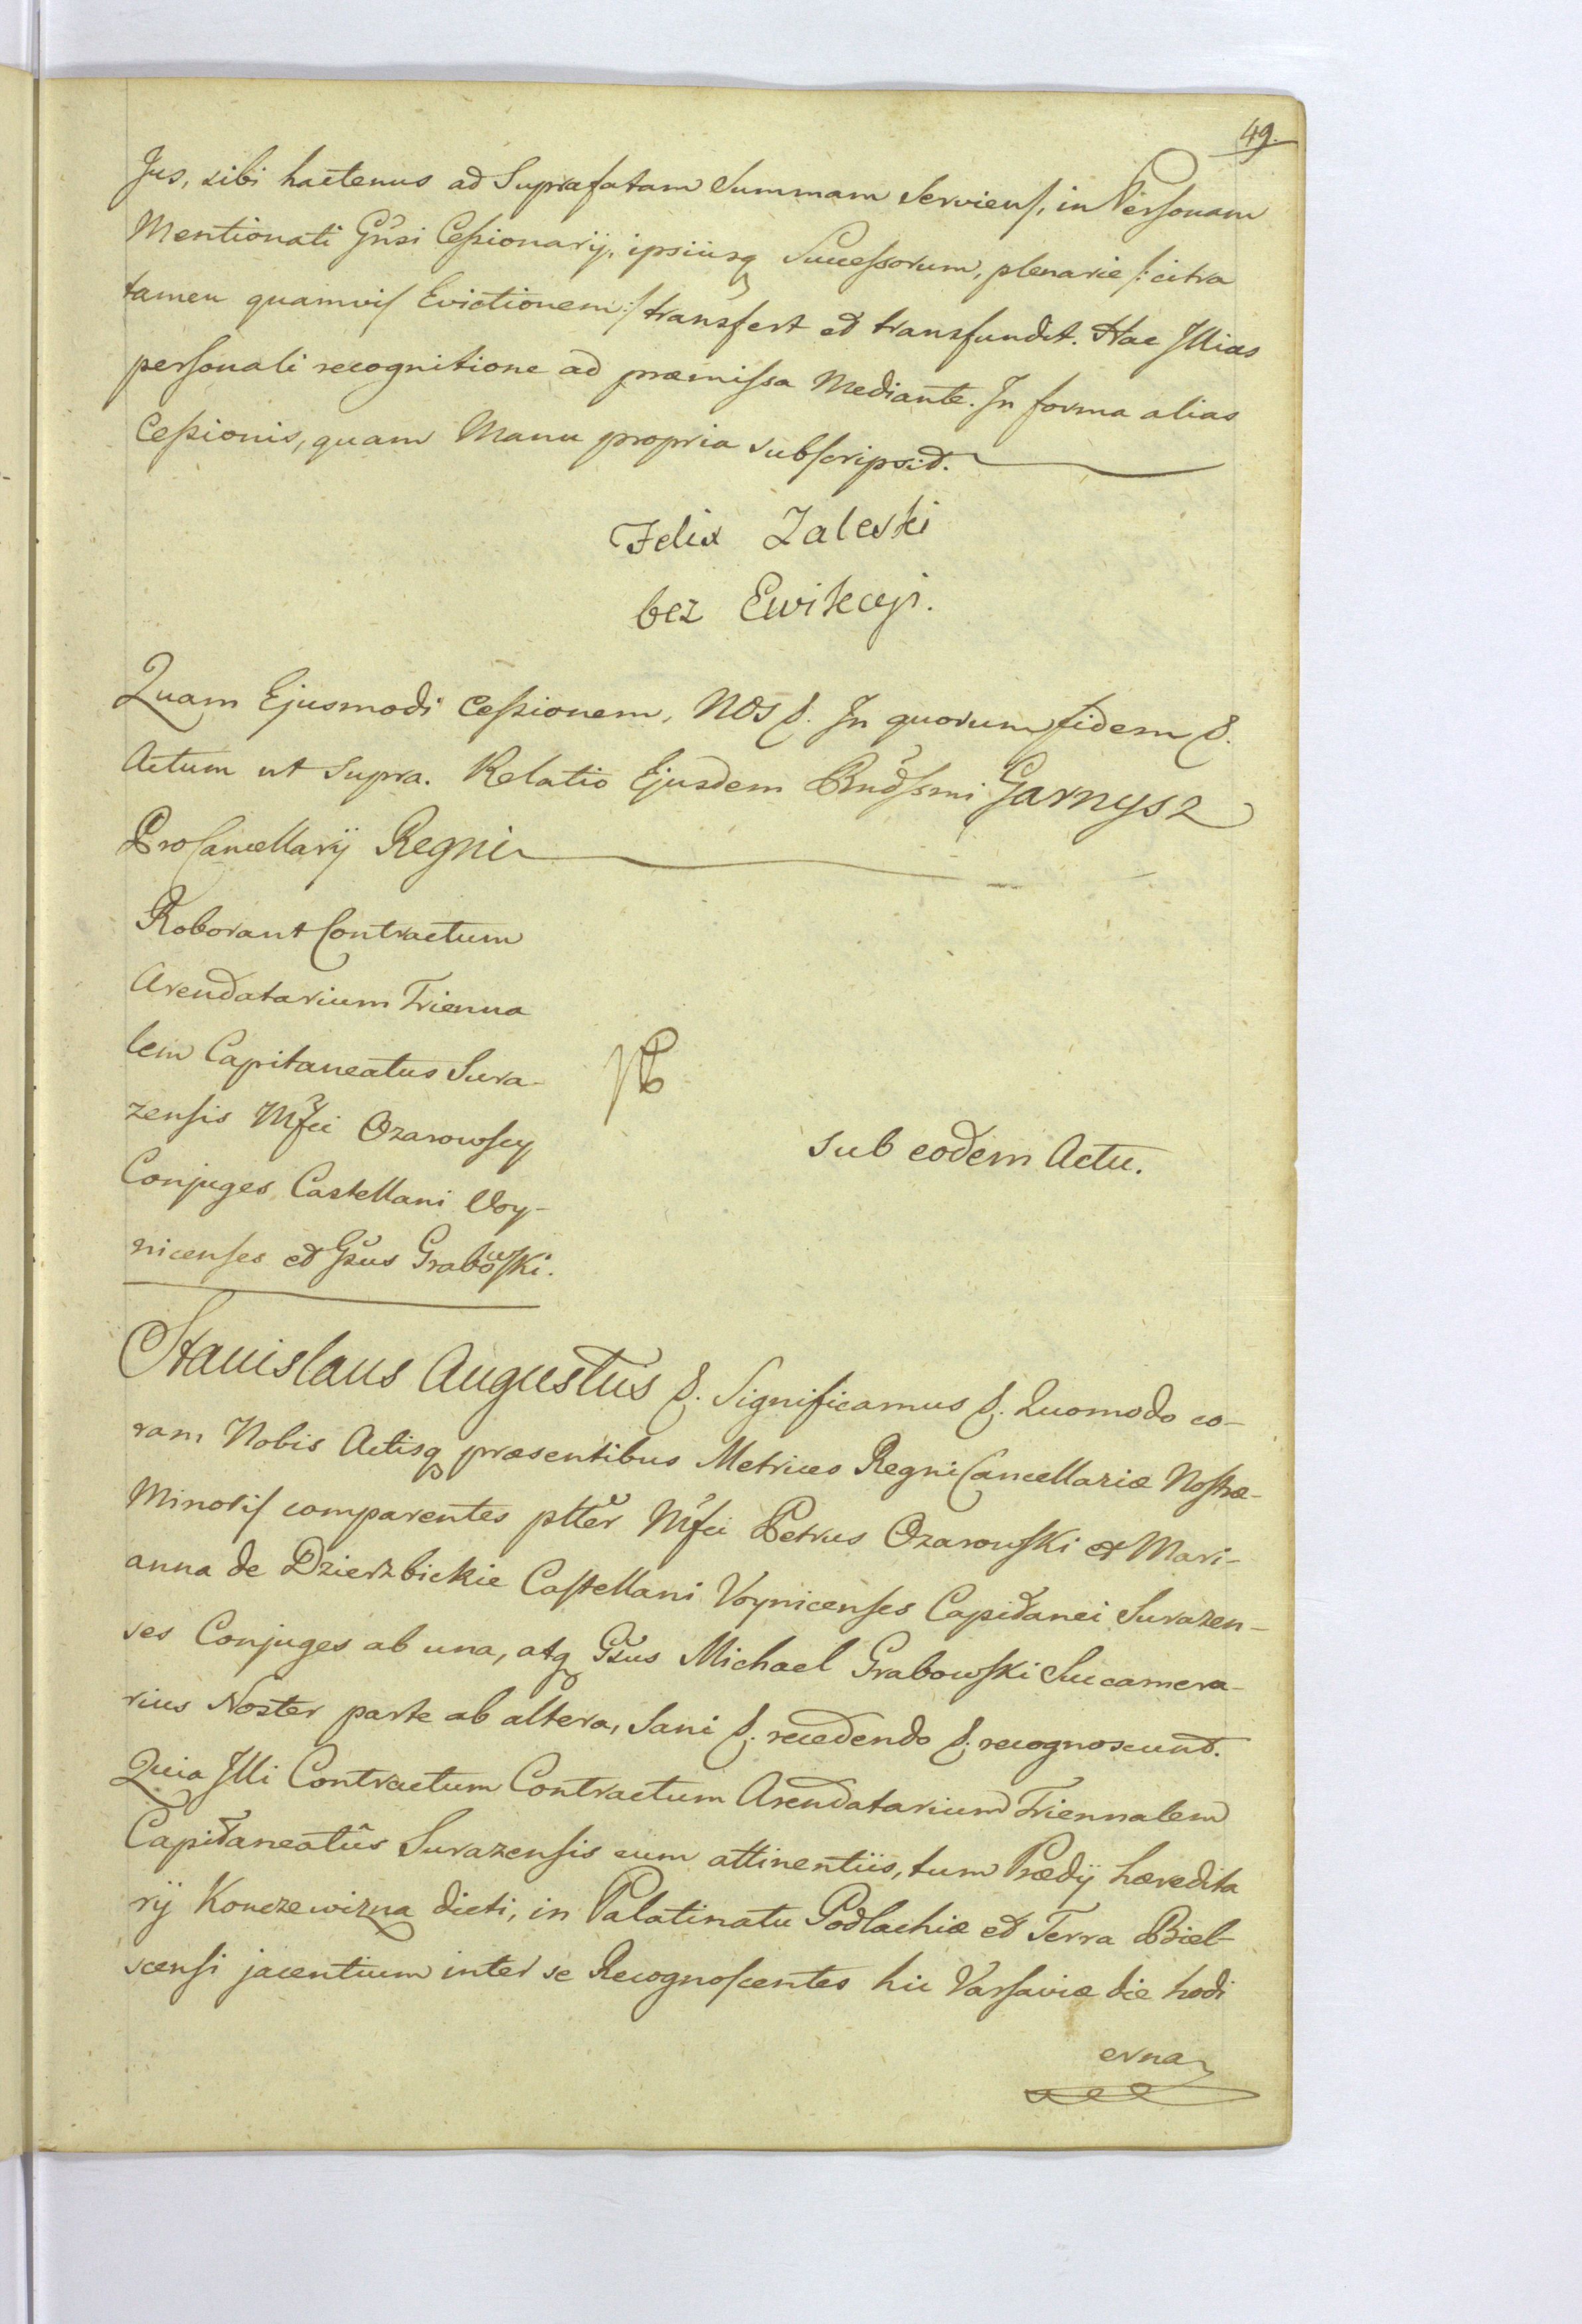 49.
Jus, sibi hactenus ad Suprafatam Summam Serviens, in Personam
Mentionati Gnsi Cessionarij, ipsiusq Successorum, plenarie /: citra
tamen quamvis Evictionem :/ transfert et transfundit. Hac Illius
personali recognitione ad præmissa Mediante. In forma alias
Cessionis, quam Manu propria subscripsit.
Felix Zaleski
bez Ewikcyi.
Quam Ejusmodi Cessionem, Nos &. In quorum fidem &.
Actum ut Supra. Relatio Ejusdem Rndssmi Garnysz
ProCancellarij Regni
Roborant Contractum
Arendatarium Trienna
lem Capitaneatus Sura-
zensis Mfci Ozarowscy
Conjuges Castellani Voy-
nicenses et Gsus Grabowski.
NB
Sub eodem Actu.
Stanislaus Augustus &. Significamus &. Quomodo co-
ram Nobis Actisq præsentibus Metrices Regni Cancellariæ Nostræ-
Minoris comparentes ptter Mfci Petrus Ozarowski et Mari-
anna de Dzierzbickie Castellani Voynicenses Capitanei Surazen-
ses Conjuges ab una, atq Gsus Michael Grabowski Sucamera-
rius Noster parte ab altera, Sani &. recedendo &. recognoscunt.
Quia Illi Contractum Contractum Arendatarium Triennalem
Capitaneatûs Surazensis cum attinentiis, tum Prædij hæredita
rij Konczewizna dicti, in Palatinatu Podlachiæ et Terra Biel-
scensi jacentium inter se Recognoscentes hic Varsaviæ die hodi
erna